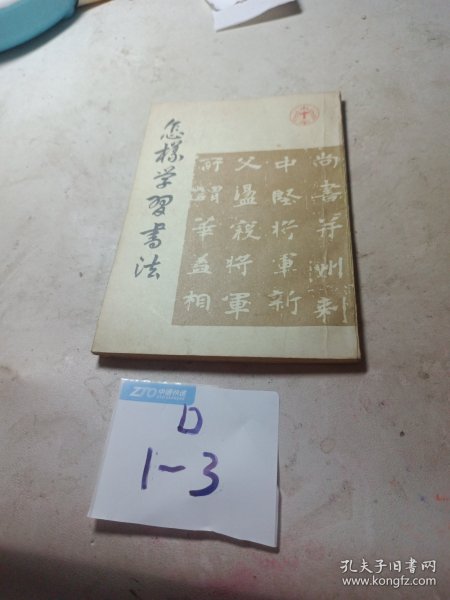 怎樣学習書法
尚書并州刺
中堅將軍新
父温親將軍
所謂華益相
ZTO 中通快递
D
1~3
孔夫子旧书网
www.kongfz.com